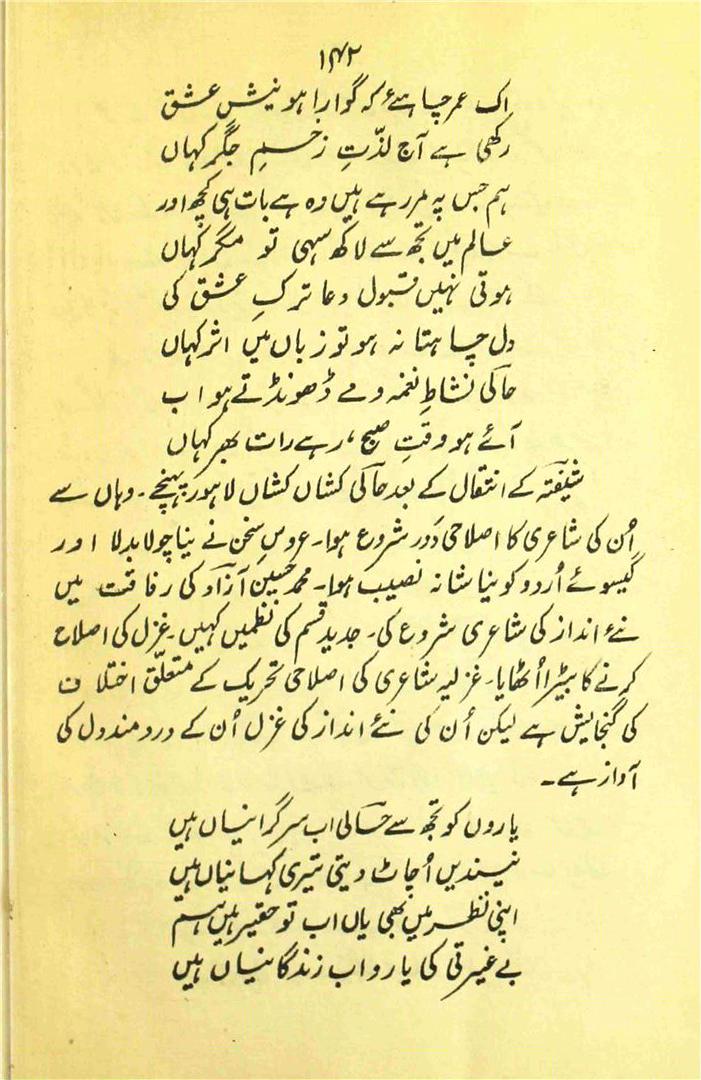 ۱۴۲
اک عمر چاہئے کہ گوارا ہو نیشِ عشق
رکھی ہے آج لذّتِ زخمِ جگر کہاں
ہم جس پہ مر رہے ہیں وہ ہے بات ہی کچھ اور
عالم میں تجھ سے لاکھ سہی تو مگر کہاں
ہوتی نہیں قبول دعا ترکِ عشق کی
دل چاہتا نہ ہو تو زباں میں اثر کہاں
حالی نشاطِ نغمہ و مے ڈھونڈتے ہو اب
آئے ہو وقتِ صبح، رہے رات بھر کہاں
شیفتہ کے انتقال کے بعد حالی کشاں کشاں لاہور پہنچے۔ وہاں سے
اُن کی شاعری کا اصلاحی دَور شروع ہوا۔ عروسِ سخن نے نیا چولا بدلا اور
گیسوئے اُردو کو نیا شانہ نصیب ہوا۔ محمد حسین آزاد کی رفاقت میں
نئے انداز کی شاعری شروع کی۔ جدید قسم کی نظمیں کہیں۔ غزل کی اصلاح
کرنے کا بیڑا اُٹھایا۔ غزلیہ شاعری کی اصلاحی تحریک کے متعلّق اختلاف
کی گنجایش ہے لیکن اُن کی نئے انداز کی غزل اُن کے دردمند دل کی
آواز ہے۔
یاروں کو تجھ سے حالی اب سرگرانیاں ہیں
نیندیں اُچاٹ دیتی تیری کہانیاں ہیں
اپنی نظر میں بھی یاں اب تو حقیر ہیں ہم
بے غیرتی کی یارو اب زندگانیاں ہیں